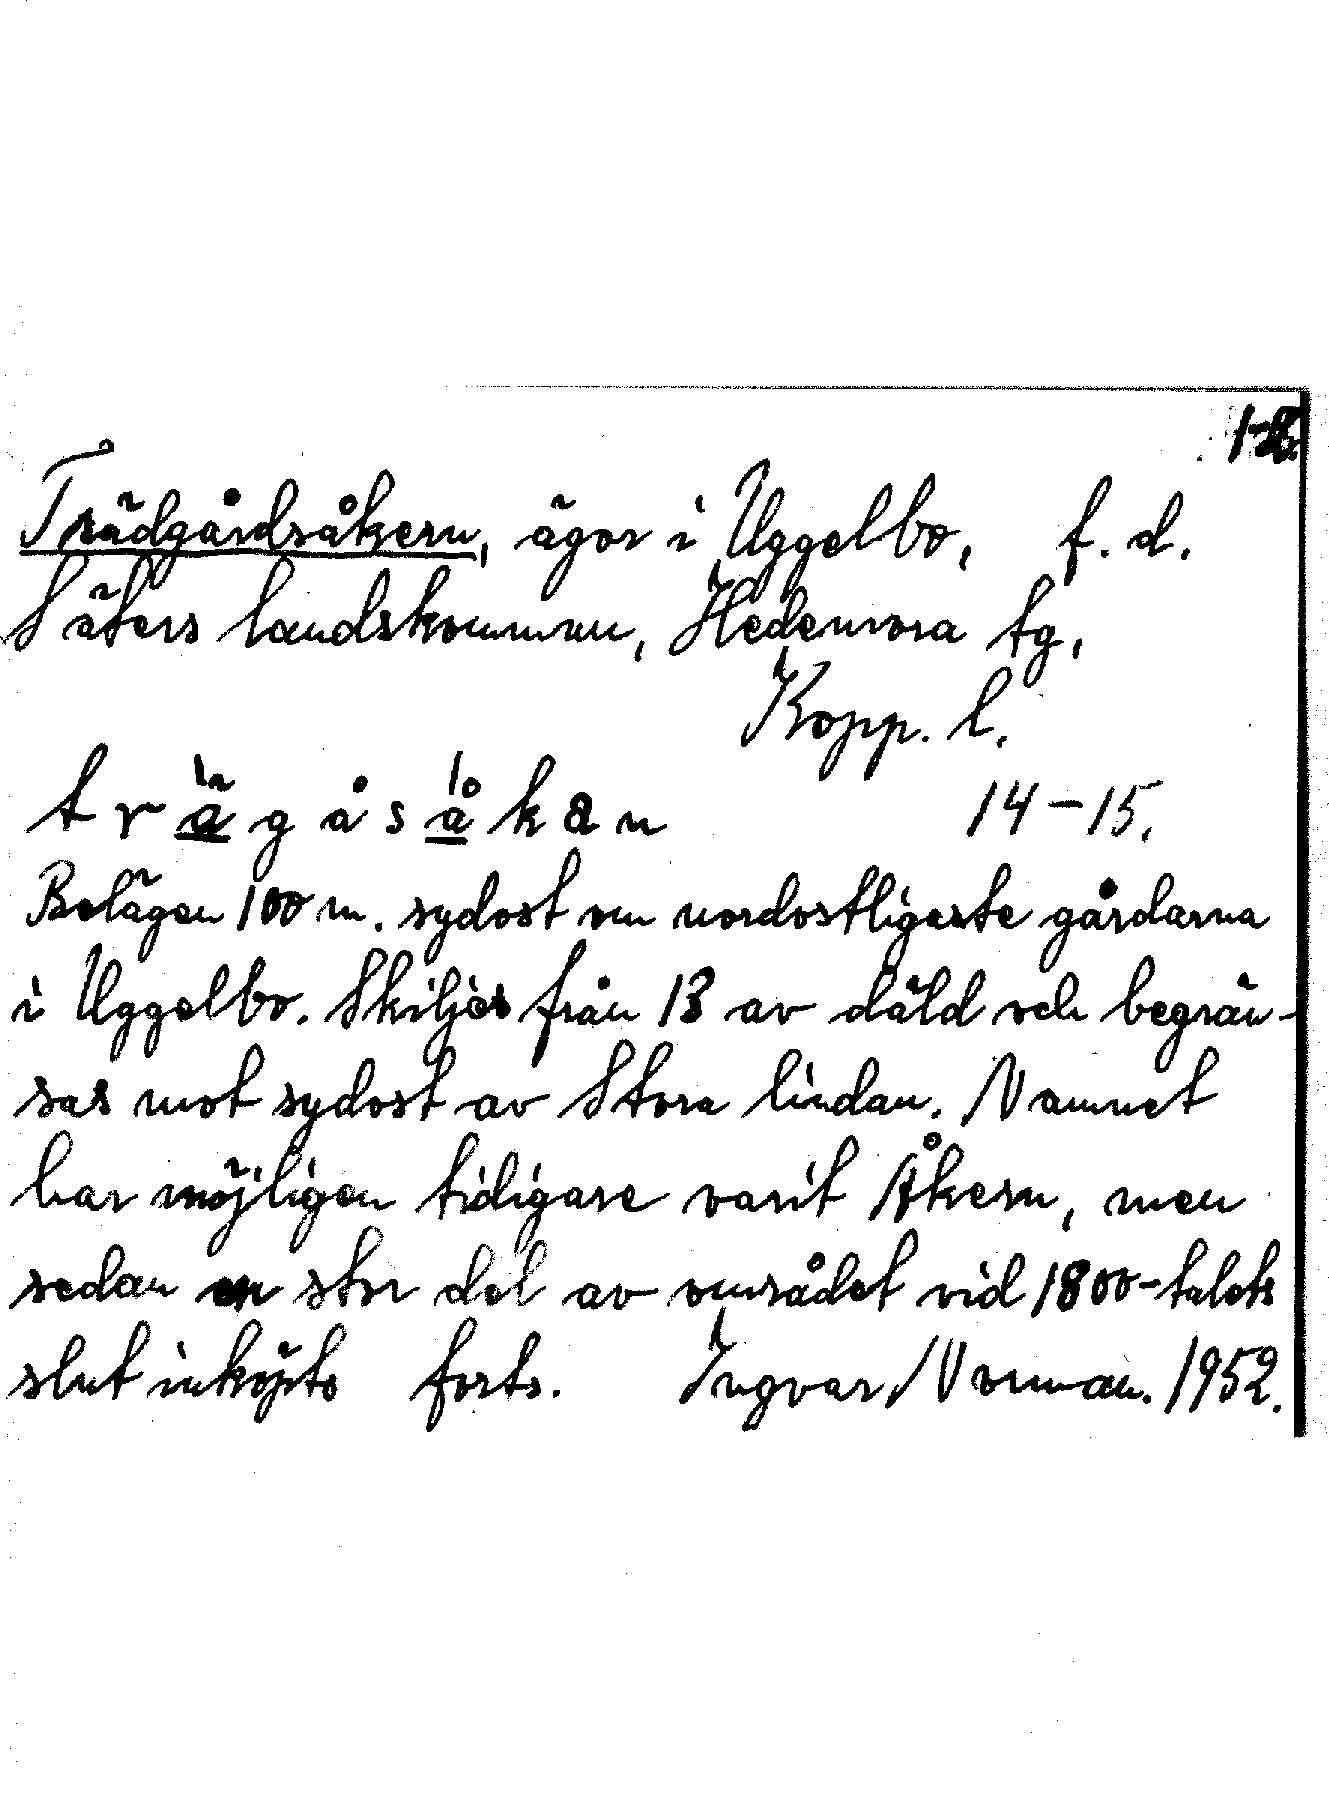 Trädgårdsåkern, ägor i Uggelbo, f. d.
Säters landskommun, Hedemora tg,
Kopp. l.
trägåsåkan 14-15.
Belägen 100 m. sydost om nordostligaste gårdarna
i Uggelbo. Skiljes från 13 av däld och begrän-
sas mot sydost av Stora lindan. Namnet
har möjligen tidigare varit Åkern, men
sedan en stor del av området vid 1800-talets
slut inköpts forts. Ingvar Norman. 1952.